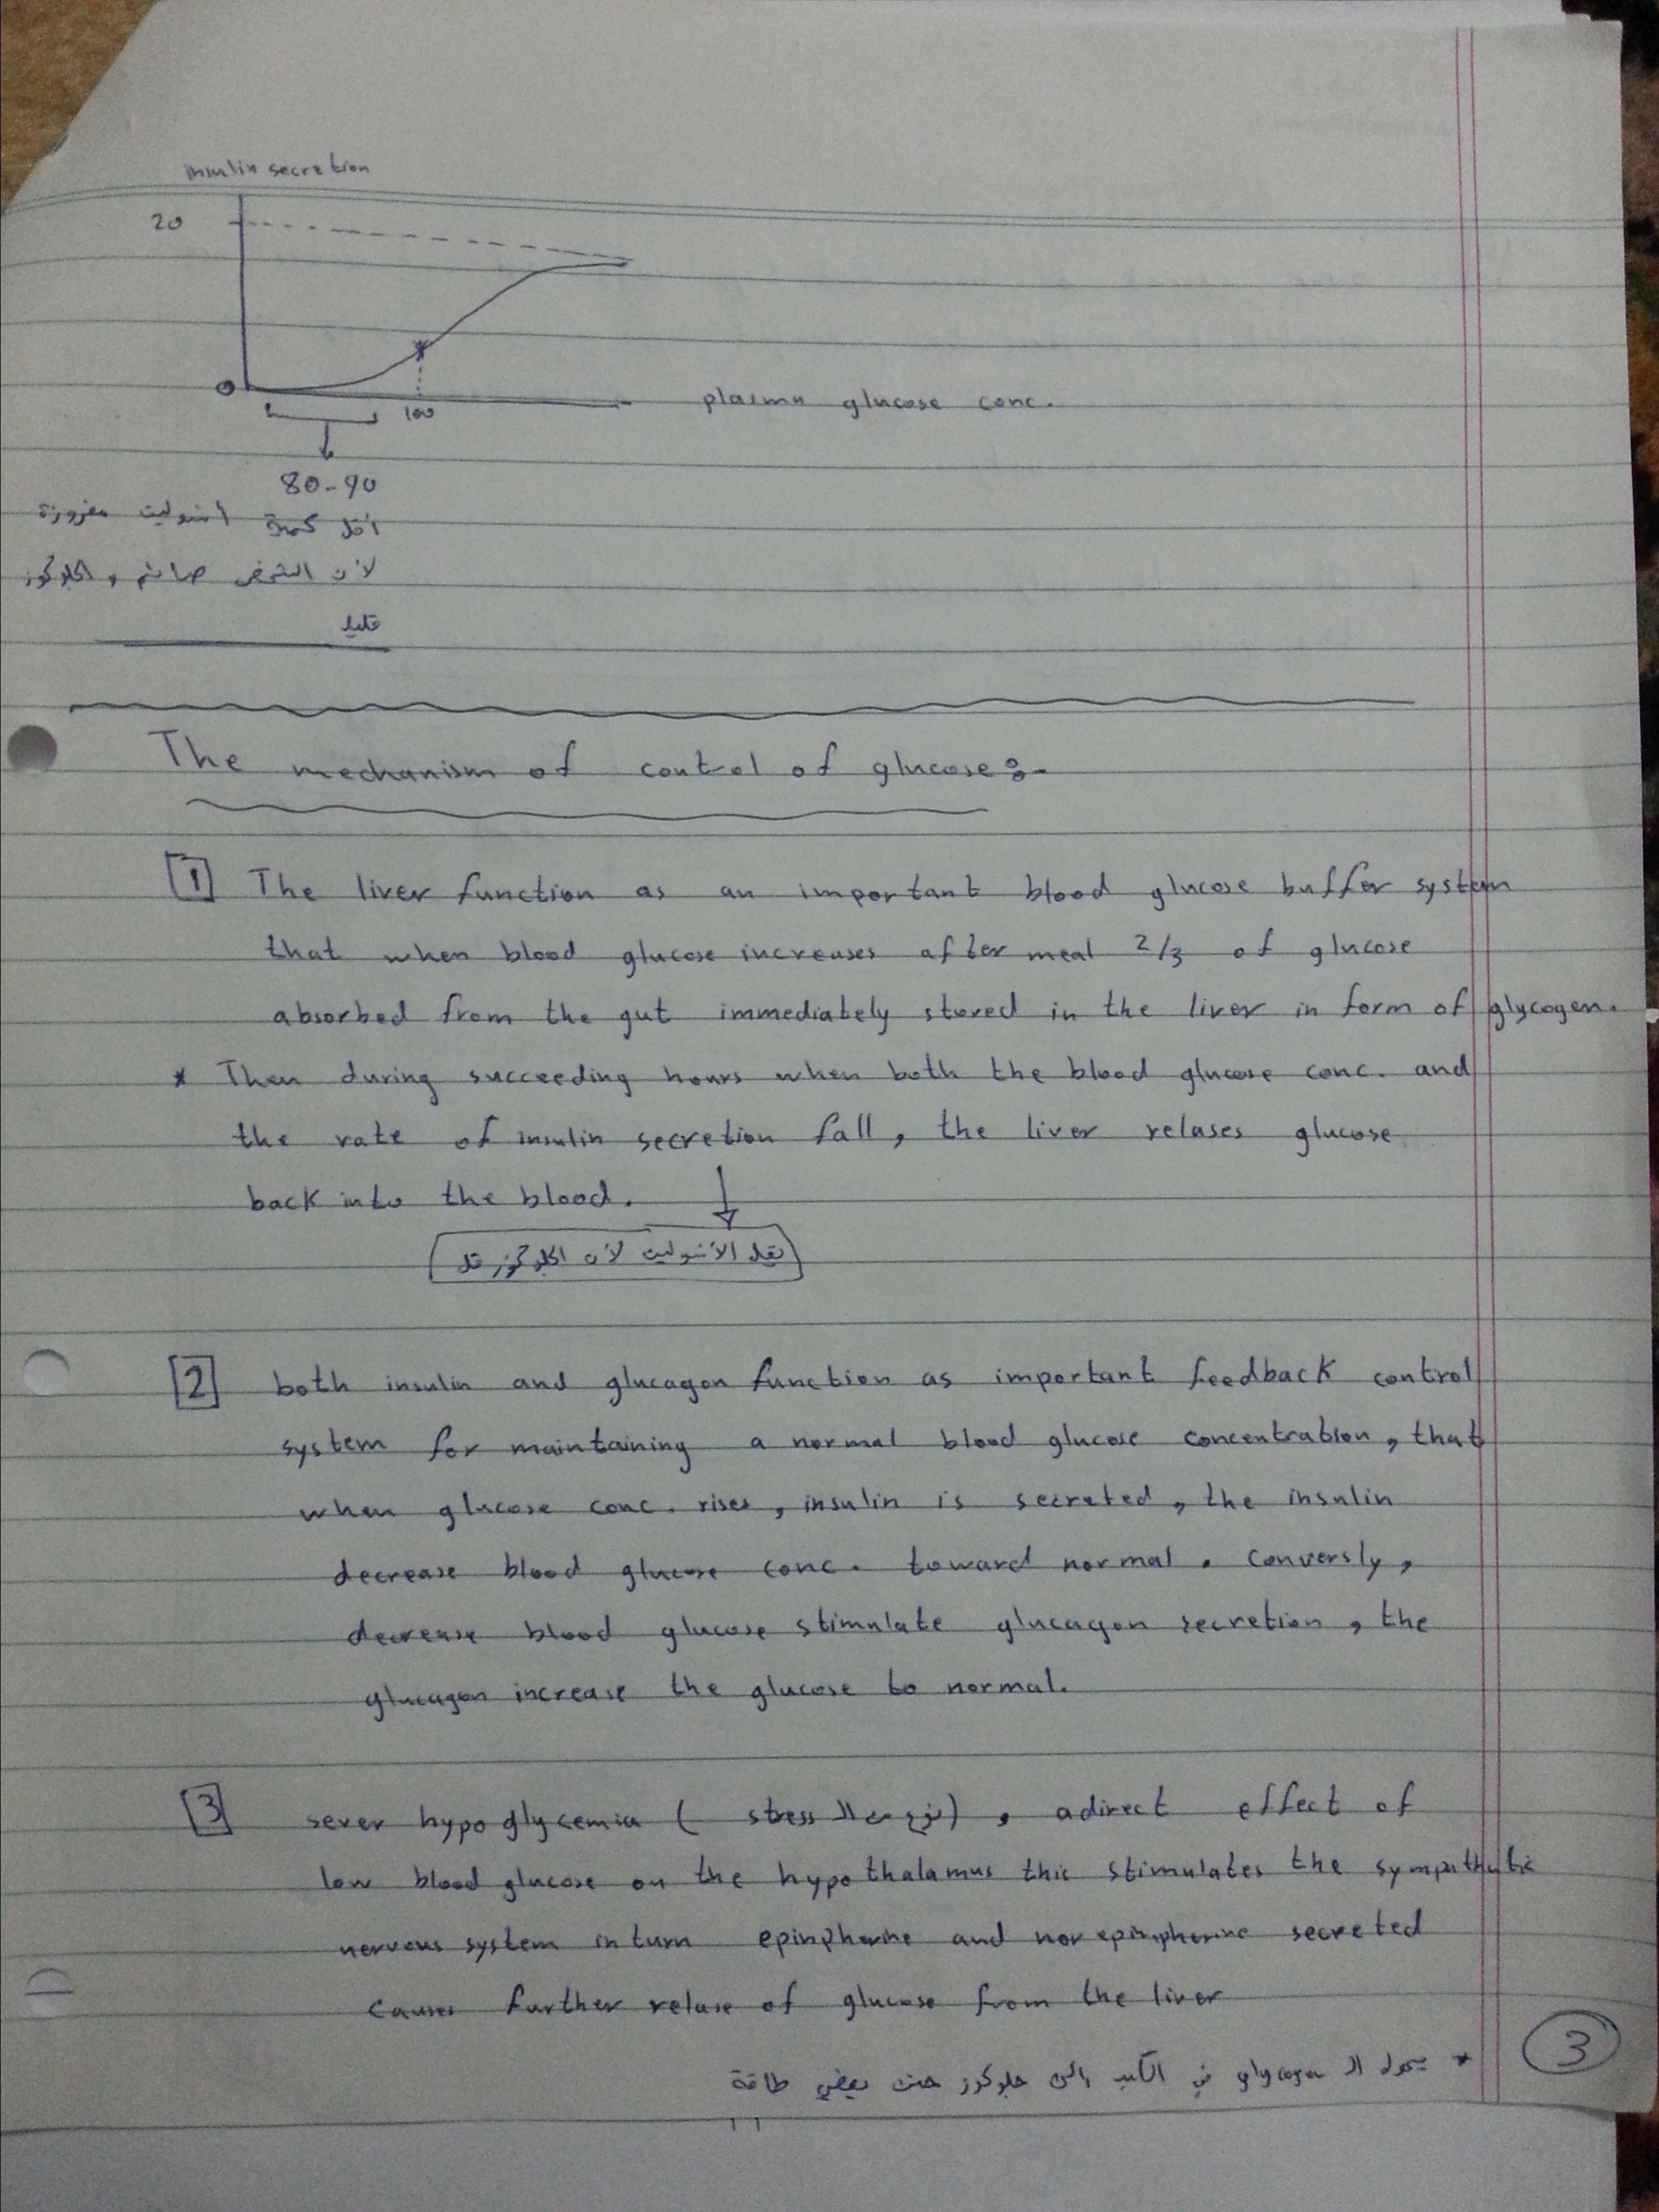 insulin secretion
20
0
100
plasma glucose conc.
80-90
أقل كمية انسولين مفروزة
لأن الشخص صائم والجلوكوز
قليل
The mechanism of control of glucose:-
[1] The liver function as an important blood glucose buffer system
that when blood glucose increases after meal 2/3 of glucose
absorbed from the gut immediately stored in the liver in form of glycogen.
* Then during succeeding hours when both the blood glucose conc. and
the rate of insulin secretion fall, the liver relases glucose
back into the blood.
يقل الأنسولين لأن الجلوكوز قل
[2] both insulin and glucagon function as important feedback control
system for maintaining a normal blood glucose concentration, that
when glucose conc. rises, insulin is secreted, the insulin
decrease blood glucose conc. toward normal. Conversly,
decrease blood glucose stimulate glucagon secretion, the
glucagon increase the glucose to normal.
[3] sever hypoglycemia ( نوع من الـ stress ), adirect effect of
low blood glucose on the hypothalamus this stimulates the sympathatic
nervous system in turn epinpherine and norepinpherine secreted
causes further relase of glucose from the liver
* يحول الـ glycogen في الكبد إلى جلوكوز حتى يعطي طاقة
3